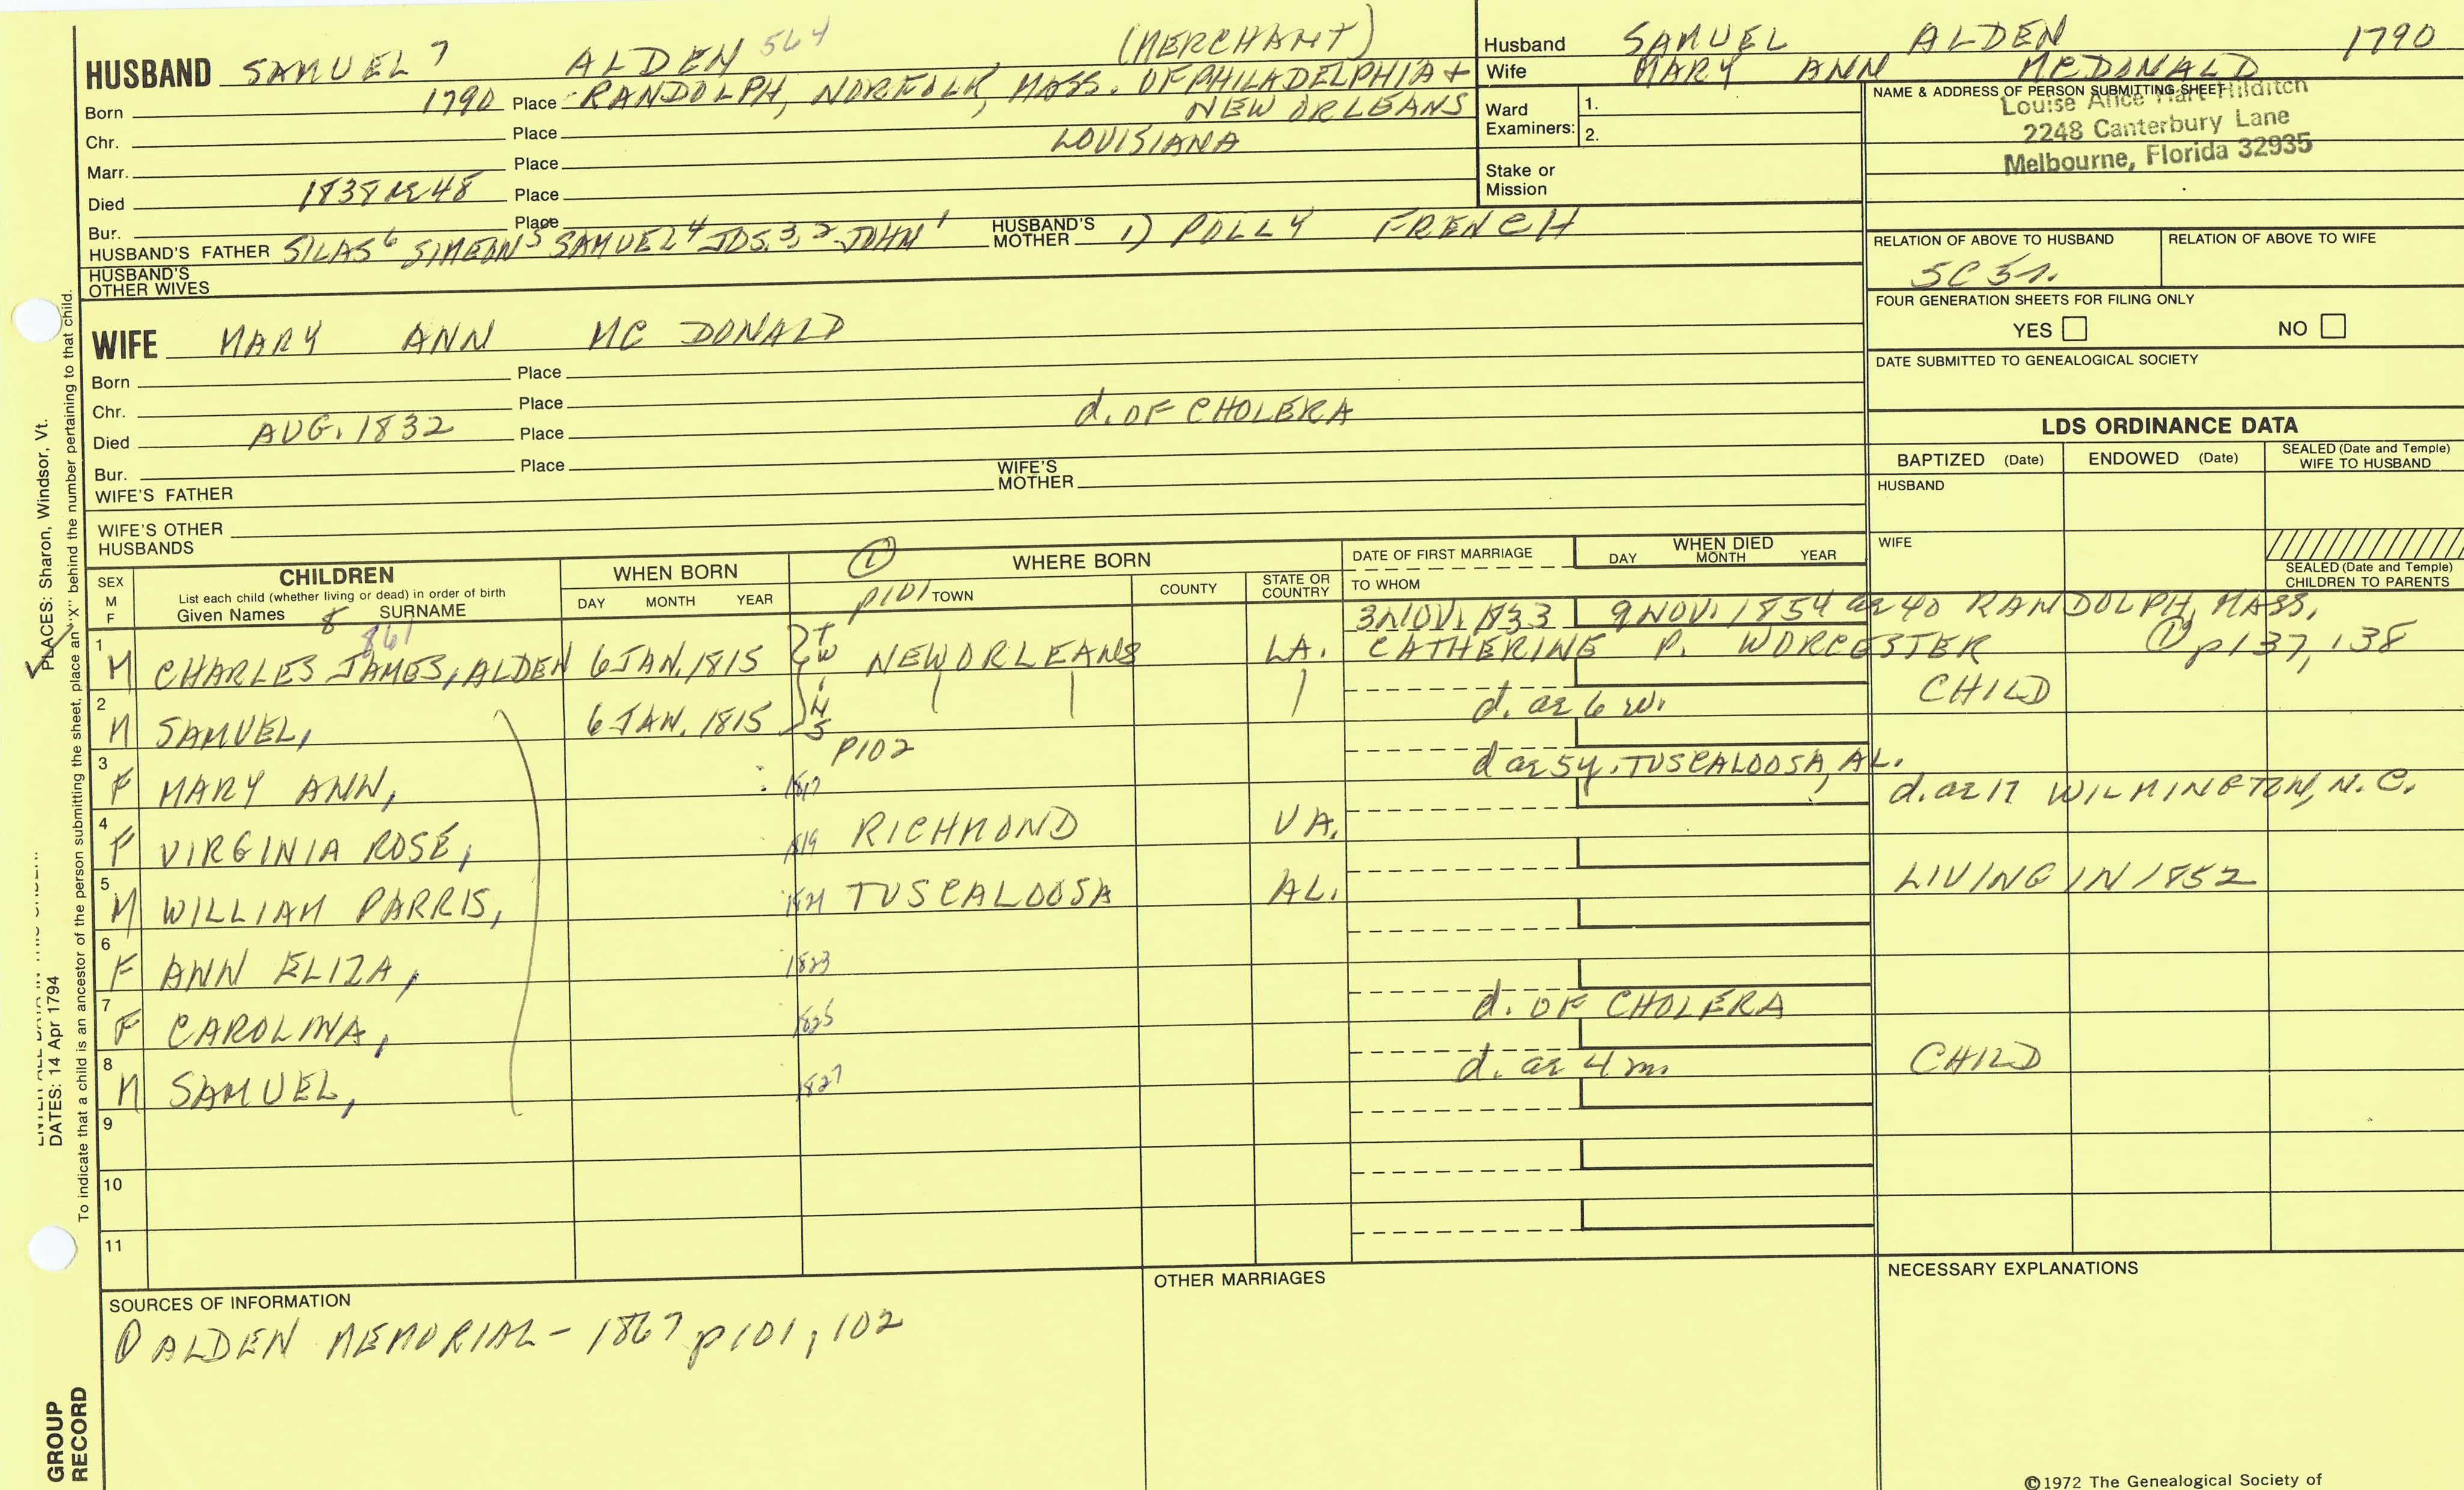 HUSBAND SAMUEL 7 ALDEN 564 (MERCHANT)
Born 1790 Place RANDOLPH, NORFOLK, MASS. OF PHILADELPHIA +
NEW ORLEANS
Chr. Place LOUISIANA
Marr. Place
Died 1838 AE 48 Place
Bur. Place
HUSBAND'S FATHER SILAS 6 SIMEON 5 SAMUEL 4 JOS. 3, 2 JOHN 1 HUSBAND'S MOTHER 1) POLLY FRENCH
HUSBAND'S OTHER WIVES
WIFE MARY ANN MC DONALD
Born Place
Chr. Place d. OF CHOLERA
Died AUG. 1832 Place
Bur. Place
WIFE'S FATHER WIFE'S MOTHER
WIFE'S OTHER HUSBANDS
Husband SAMUEL ALDEN 1790
Wife MARY ANN MCDONALD
Ward Examiners: 1.
2.
Stake or Mission
NAME & ADDRESS OF PERSON SUBMITTING SHEET
Louise Alice Hart Hilditch
2248 Canterbury Lane
Melbourne, Florida 32935
RELATION OF ABOVE TO HUSBAND RELATION OF ABOVE TO WIFE
FOUR GENERATION SHEETS FOR FILING ONLY
YES NO
DATE SUBMITTED TO GENEALOGICAL SOCIETY
LDS ORDINANCE DATA
BAPTIZED (Date) ENDOWED (Date) SEALED (Date and Temple) WIFE TO HUSBAND
HUSBAND
WIFE
SEALED (Date and Temple) CHILDREN TO PARENTS
SEX M F
CHILDREN
List each child (whether living or dead) in order of birth
Given Names 8 SURNAME
WHEN BORN
DAY MONTH YEAR
① p101
WHERE BORN
TOWN COUNTY STATE OR COUNTRY
DATE OF FIRST MARRIAGE
TO WHOM
WHEN DIED
DAY MONTH YEAR
861 3 NOV. 1833 9 NOV. 1854 ae 40 RANDOLPH, MASS.
1 M CHARLES JAMES, ALDEN 6 JAN. 1815 TWINS NEW ORLEANS LA. CATHERINE P. WORCESTER ① p137, 138
2 M SAMUEL, 6 JAN. 1815 d. ae 6 w. CHILD
p102
3 F MARY ANN, 1817 d ae 5y. TUSCALOOSA, AL.
d. ae 17 WILMINGTON, N.C.
4 F VIRGINIA ROSE, 1819 RICHMOND VA.
5 M WILLIAM PARRIS, 1821 TUSCALOOSA AL. LIVING IN 1852
6 F ANN ELIZA, 1823
7 F CAROLINA, 1825 d. OF CHOLERA
8 M SAMUEL, 1827 d. ae 4 m. CHILD
9
10
11
SOURCES OF INFORMATION
① ALDEN MEMORIAL - 1867 p101, 102
OTHER MARRIAGES
NECESSARY EXPLANATIONS
©1972 The Genealogical Society of
PLACES: Sharon, Windsor, Vt.
DATES: 14 Apr 1794
To indicate that a child is an ancestor of the person submitting the sheet, place an "X" behind the number pertaining to that child.
GROUP
RECORD